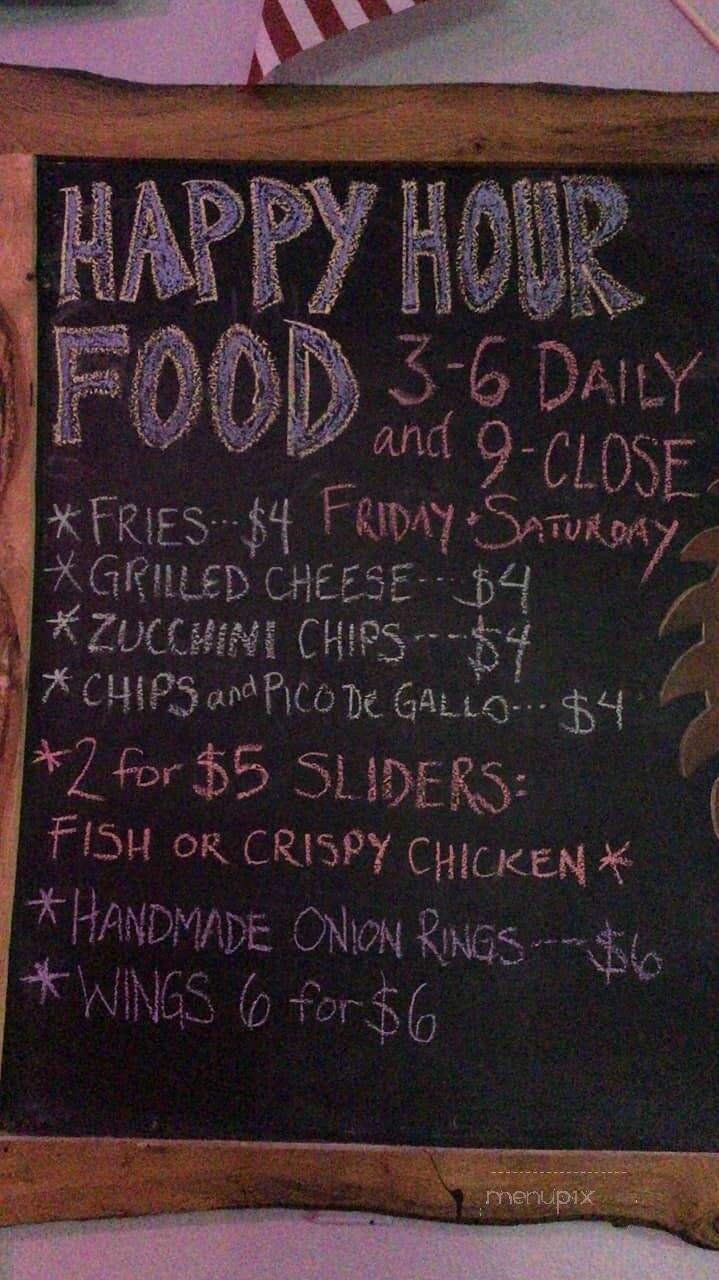 HAPPY HOUR
FOOD 3-6 DAILY
and 9-CLOSE
FRIDAY + SATURDAY
* FRIES...$4
* GRILLED CHEESE---$4
* ZUCCHINI CHIPS----$4
* CHIPS and PICO DE GALLO... $4
* 2 for $5 SLIDERS:
FISH OR CRISPY CHICKEN *
* HANDMADE ONION RINGS---$6
* WINGS 6 for $6
menupix